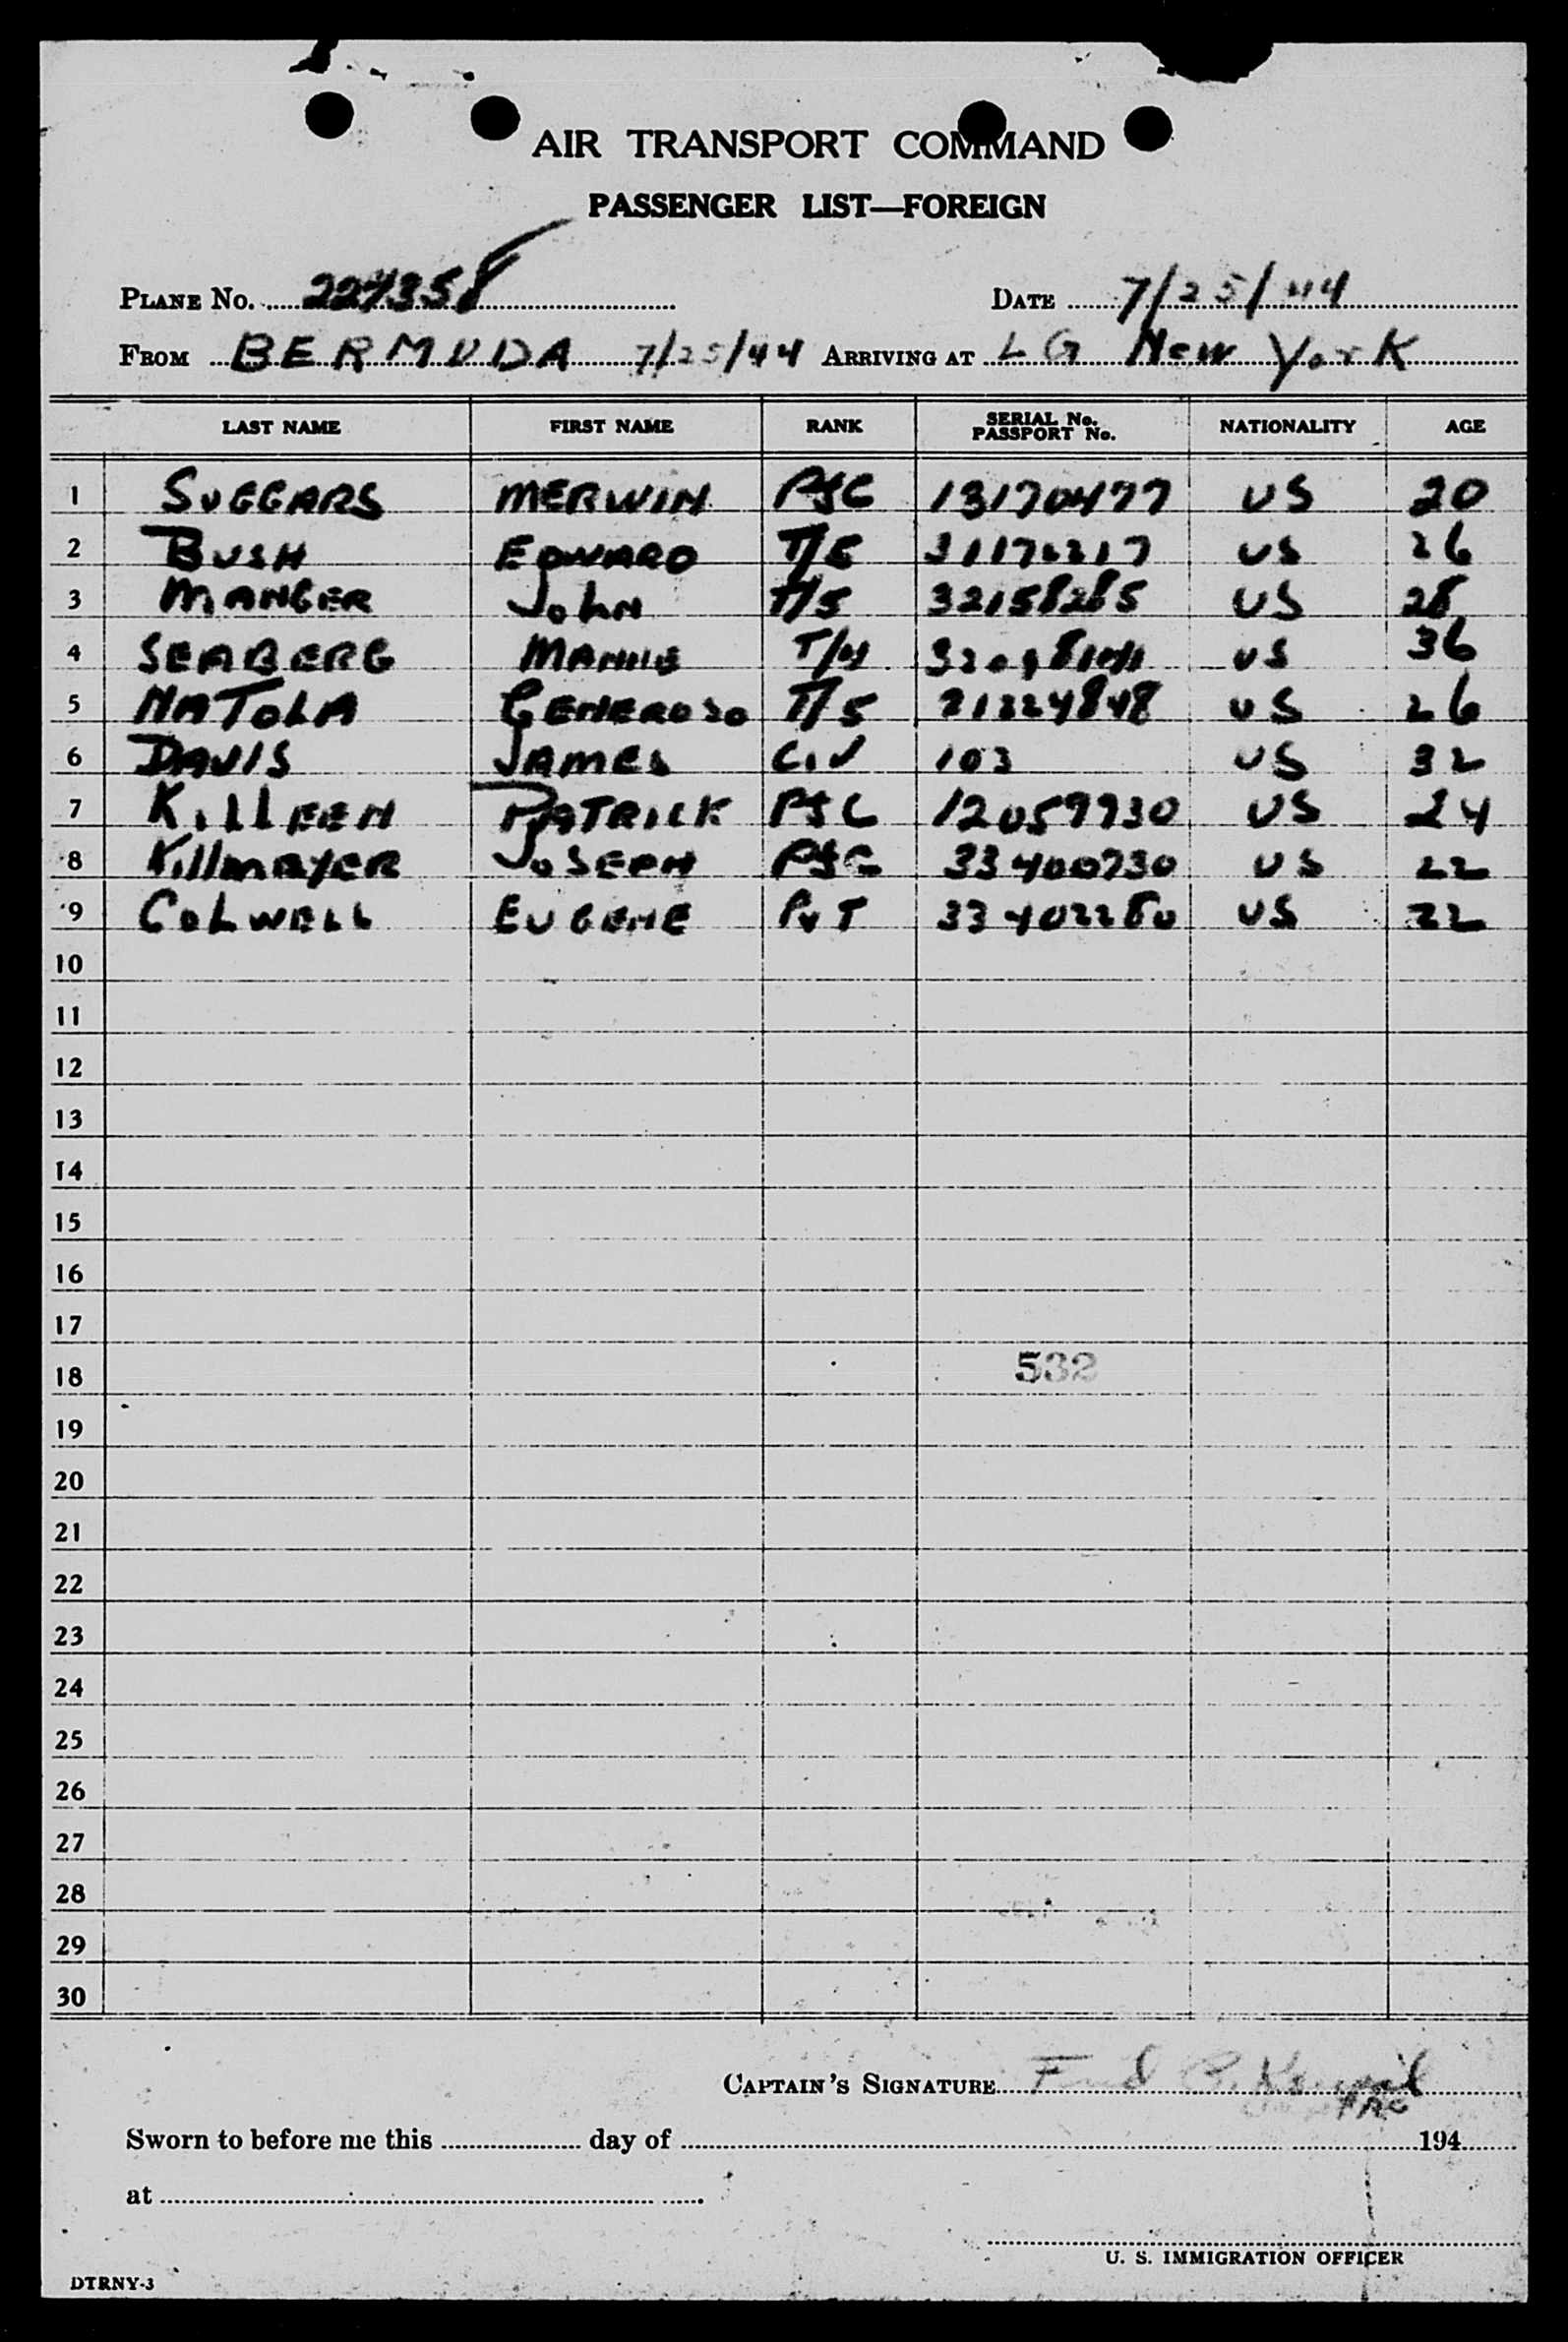 AIR TRANSPORT COMMAND
PASSENGER LIST—FOREIGN
PLANE NO. 224358 DATE 7/25/44
FROM BERMUDA 7/25/44 ARRIVING AT LG New York
LAST NAME FIRST NAME RANK SERIAL No. PASSPORT No. NATIONALITY AGE
1 SUGGARS MERWIN PFC 13170477 US 20
2 BUSH EDWARD T/5 31172217 US 26
3 MANGER JOHN T/5 32158285 US 28
4 SEABERG MANNIE T/4 US 36
5 NATOLA GENEROSO T/5 US 26
6 DAVIS JAMES CIV 103 US 32
7 KILLEEN PATRICK PFC 12059930 US 24
8 KillmAYER JOSEPH PFC 33400730 US 22
9 COLWELL EUGENE PVT 33402280 US 22
10
11
12
13
14
15
16
17
18 532
19
20
21
22
23
24
25
26
27
28
29
30
CAPTAIN'S SIGNATURE
Sworn to before me this day of 194
at
U. S. IMMIGRATION OFFICER
DTRNY-3